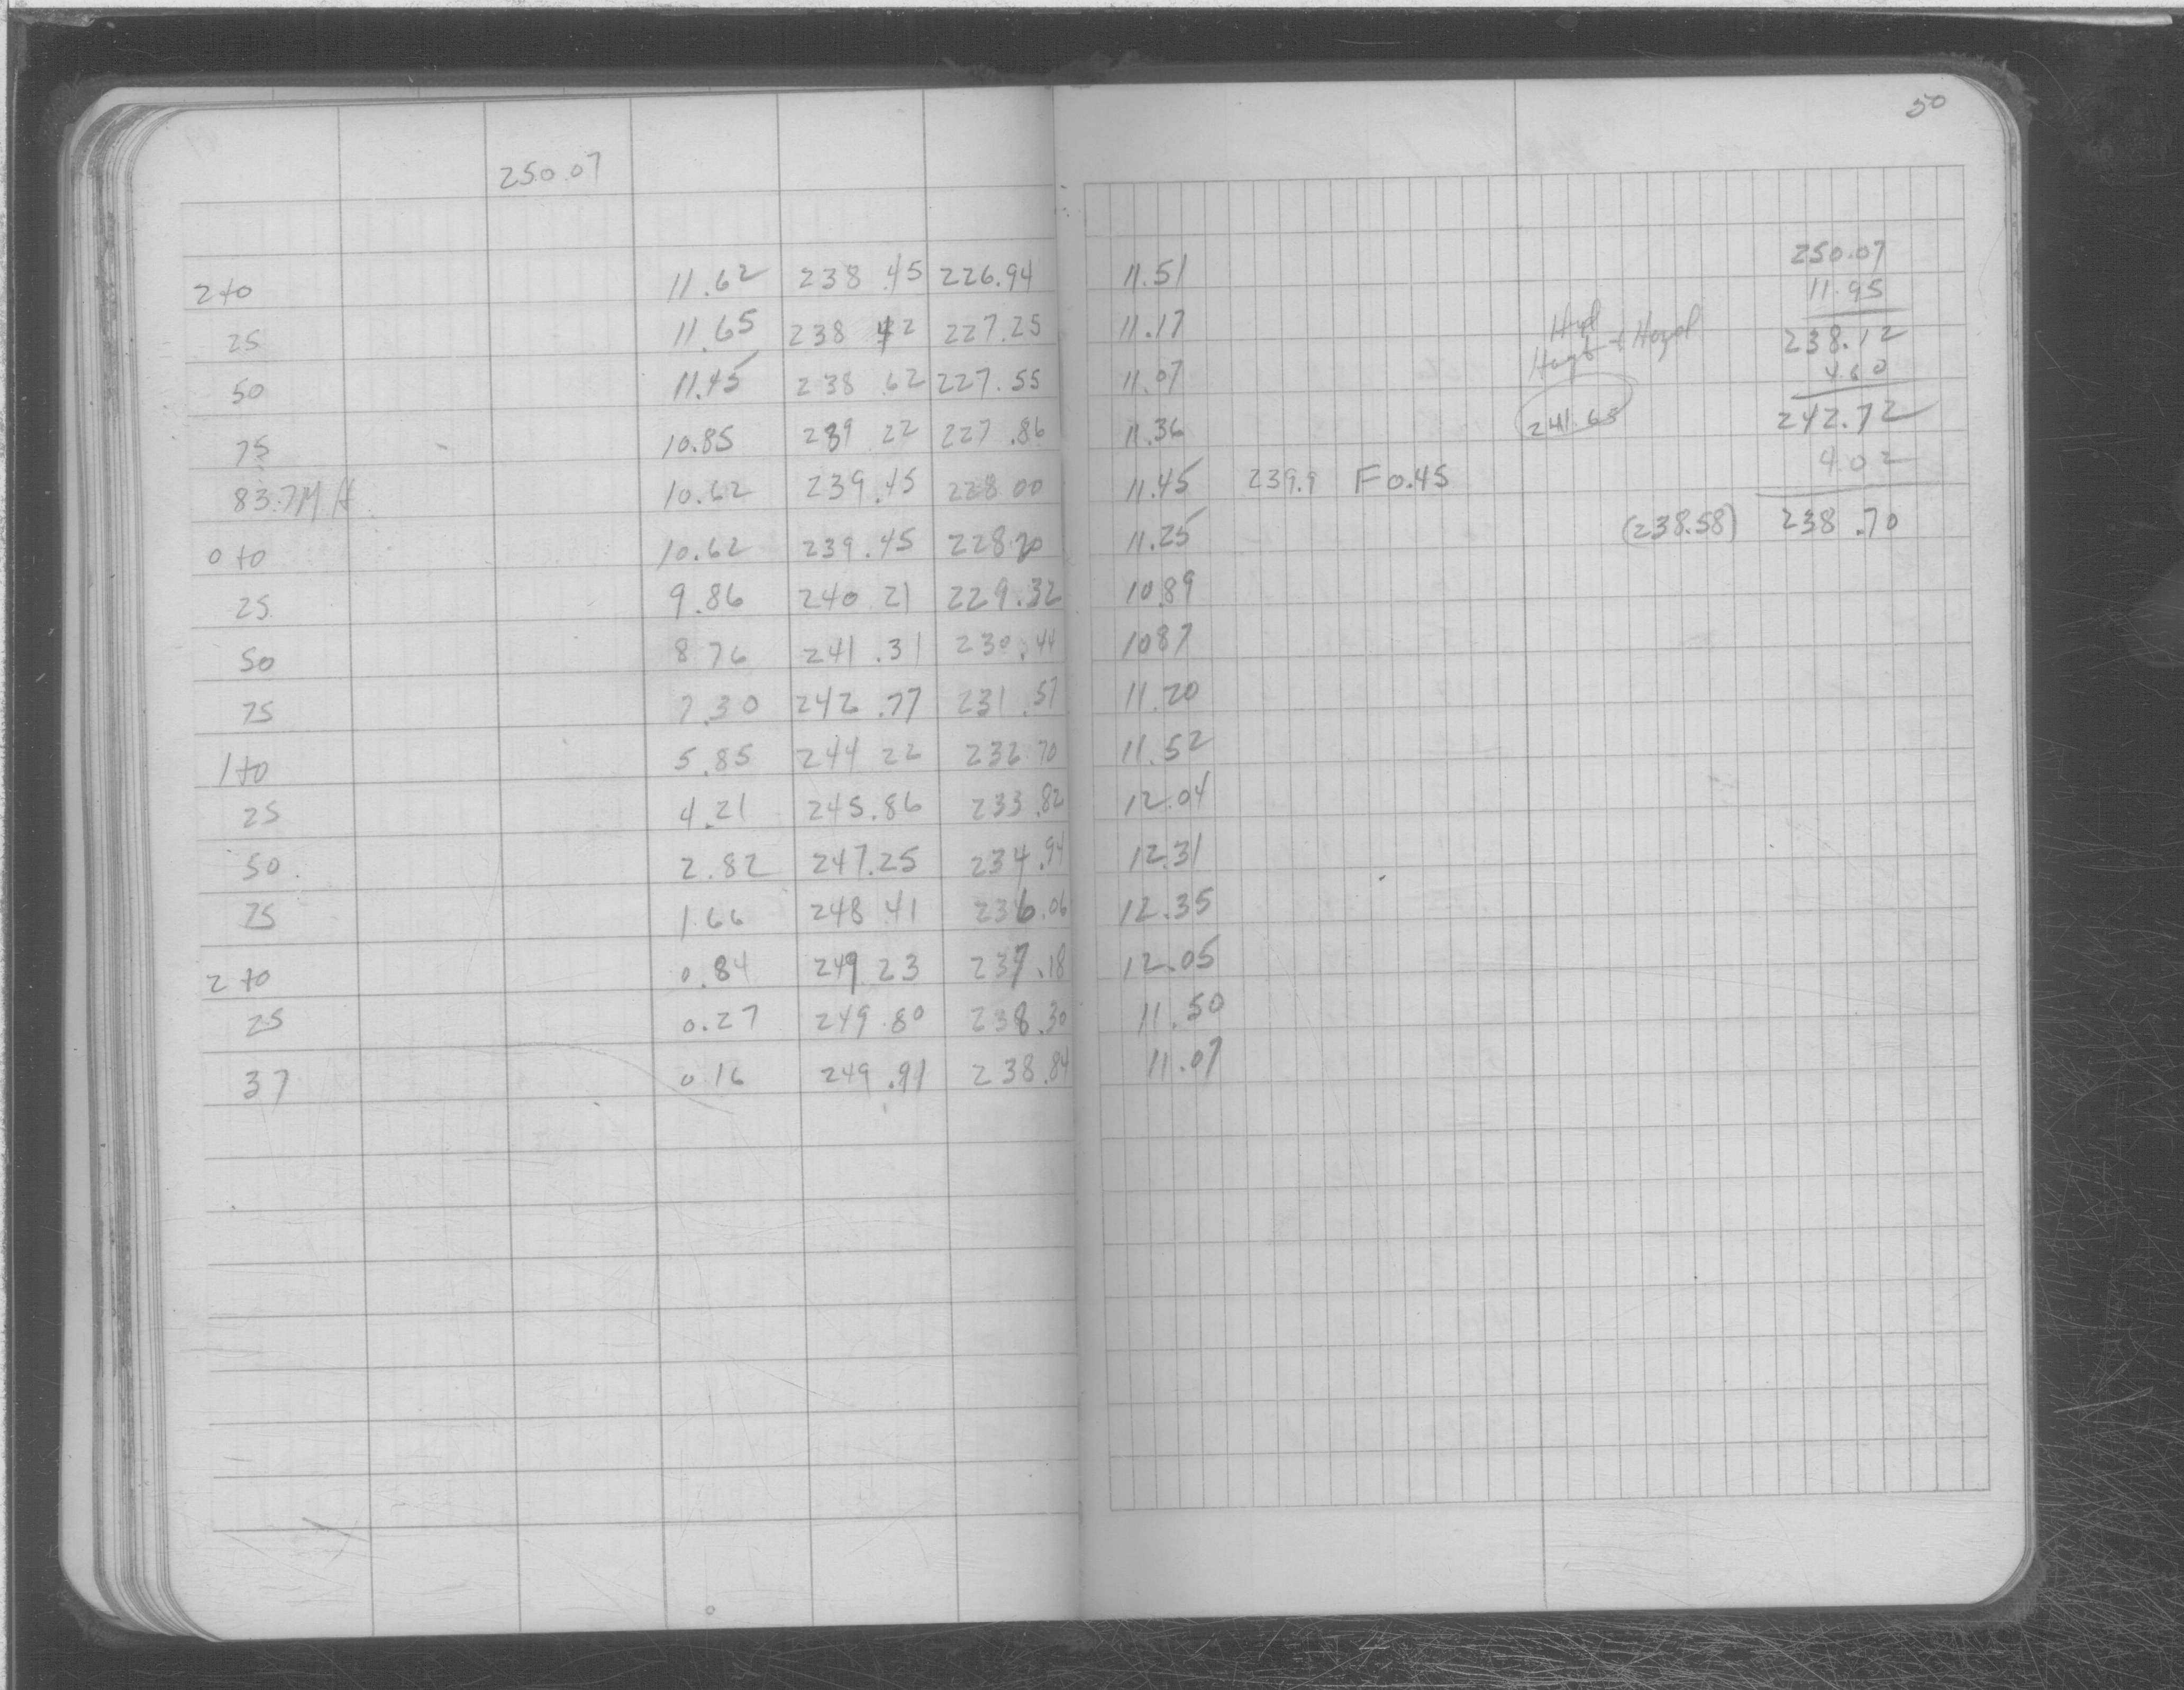 50
250.07
2+0 11.62 238.45 226.94 11.51
25 11.65 238 42 227.25 11.17
50 11.45 238.62 227.55 11.07
75 10.85 239 22 227.86 11.36
83.7 M H 10.62 239.45 228 00 11.45 239.9 F 0.45
0+0 10.62 239.45 228.20 11.25
25 9.86 240 21 229.32 10.89
50 8 76 241.31 230.44 10 87
75 7.30 242.77 231.57 11.20
1+0 5.85 244 22 232 70 11.52
25 4.21 245.86 233.82 12.04
50 2.82 247.25 234.94 12.31
75 1.66 248 41 236.06 12.35
2+0 0.84 249 23 237.18 12.05
25 0.27 249.80 238.30 11.50
37 0 16 249.91 238.84 11.07
250.07
11.95
238.12
4.60
242.72
4.02
(238.58) 238.70
Hyd
241.68